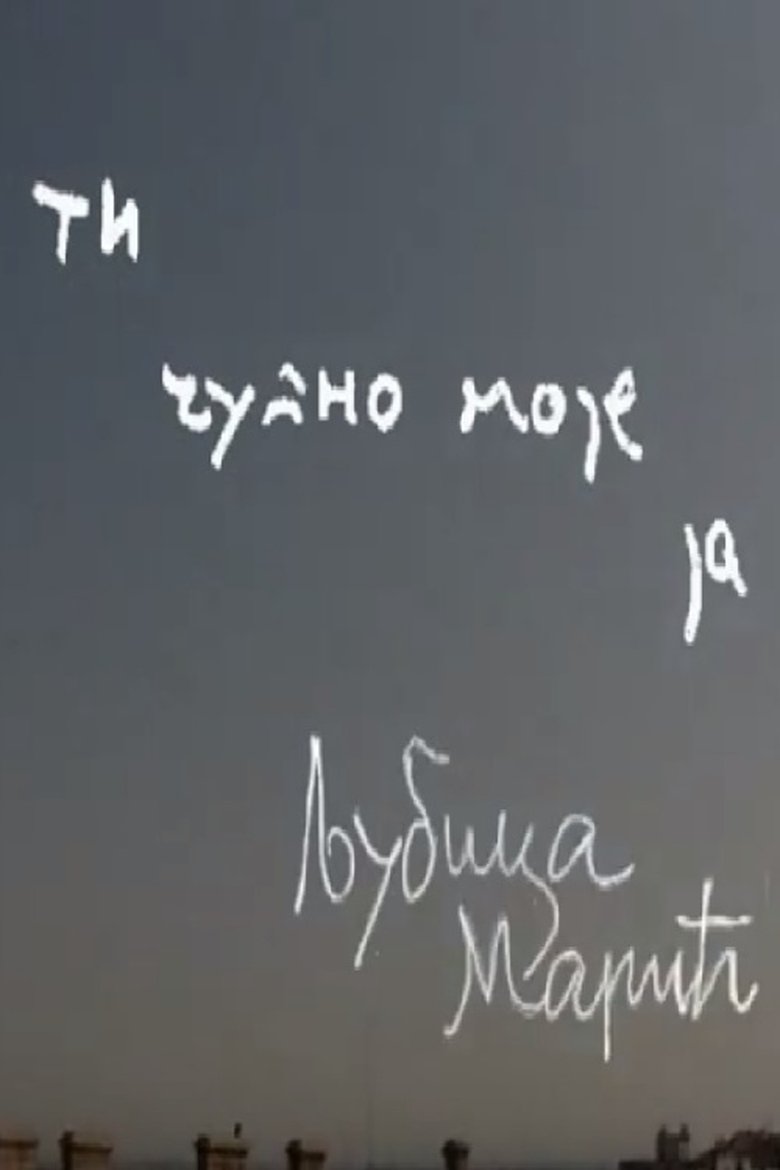 ти
чудно моје
ја
Љубица
Марић